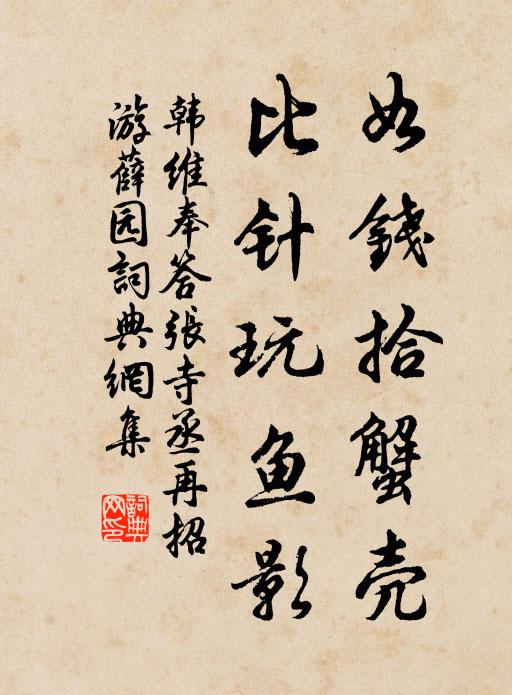 如錢拾蟹壳
比针玩鱼影
韩维奉答張寺丞再招
游薛园詞典網集
詞典
网印